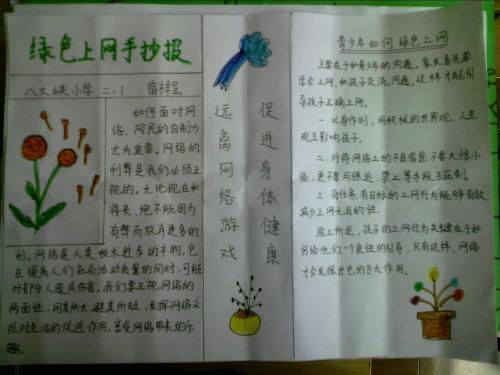 绿色上网手抄报
八大峡小学 二.1 宿祥呈
如何面对网
络，网民的自制力
尤为重要。网络的
利弊是我们必须正
视的，无论现在和
将来，绝不能因为
有弊而放弃更多的
利。网络是人类技术进步的产物，它
在提高人们社会活动质量的同时，可能
对部分人造成伤害，我们要正视网络的
两面性，用其所长，避其所短，发挥网络文化
对生活的促进作用，享受网络带来的乐
趣。
远离网络游戏
促进身体健康
青少年如何绿色上网
主要在于和青少年的沟通。家长首先要
学会上网，和孩子交流沟通。这样才能引
导孩子正确上网。
一.以身作则，用积极的世界观，人生
观去影响孩子。
二.对待网络上的不良信息，不要大惊小
怪，更不要用强迫、禁止等手段去压制
三.有任务，有目标的上网行为能够有效
减少上网无目的性。
综上所述，孩子的上网行为关键在于如
何给他们一个良性的引导，只有这样，网络
才会发挥出它的巨大作用。